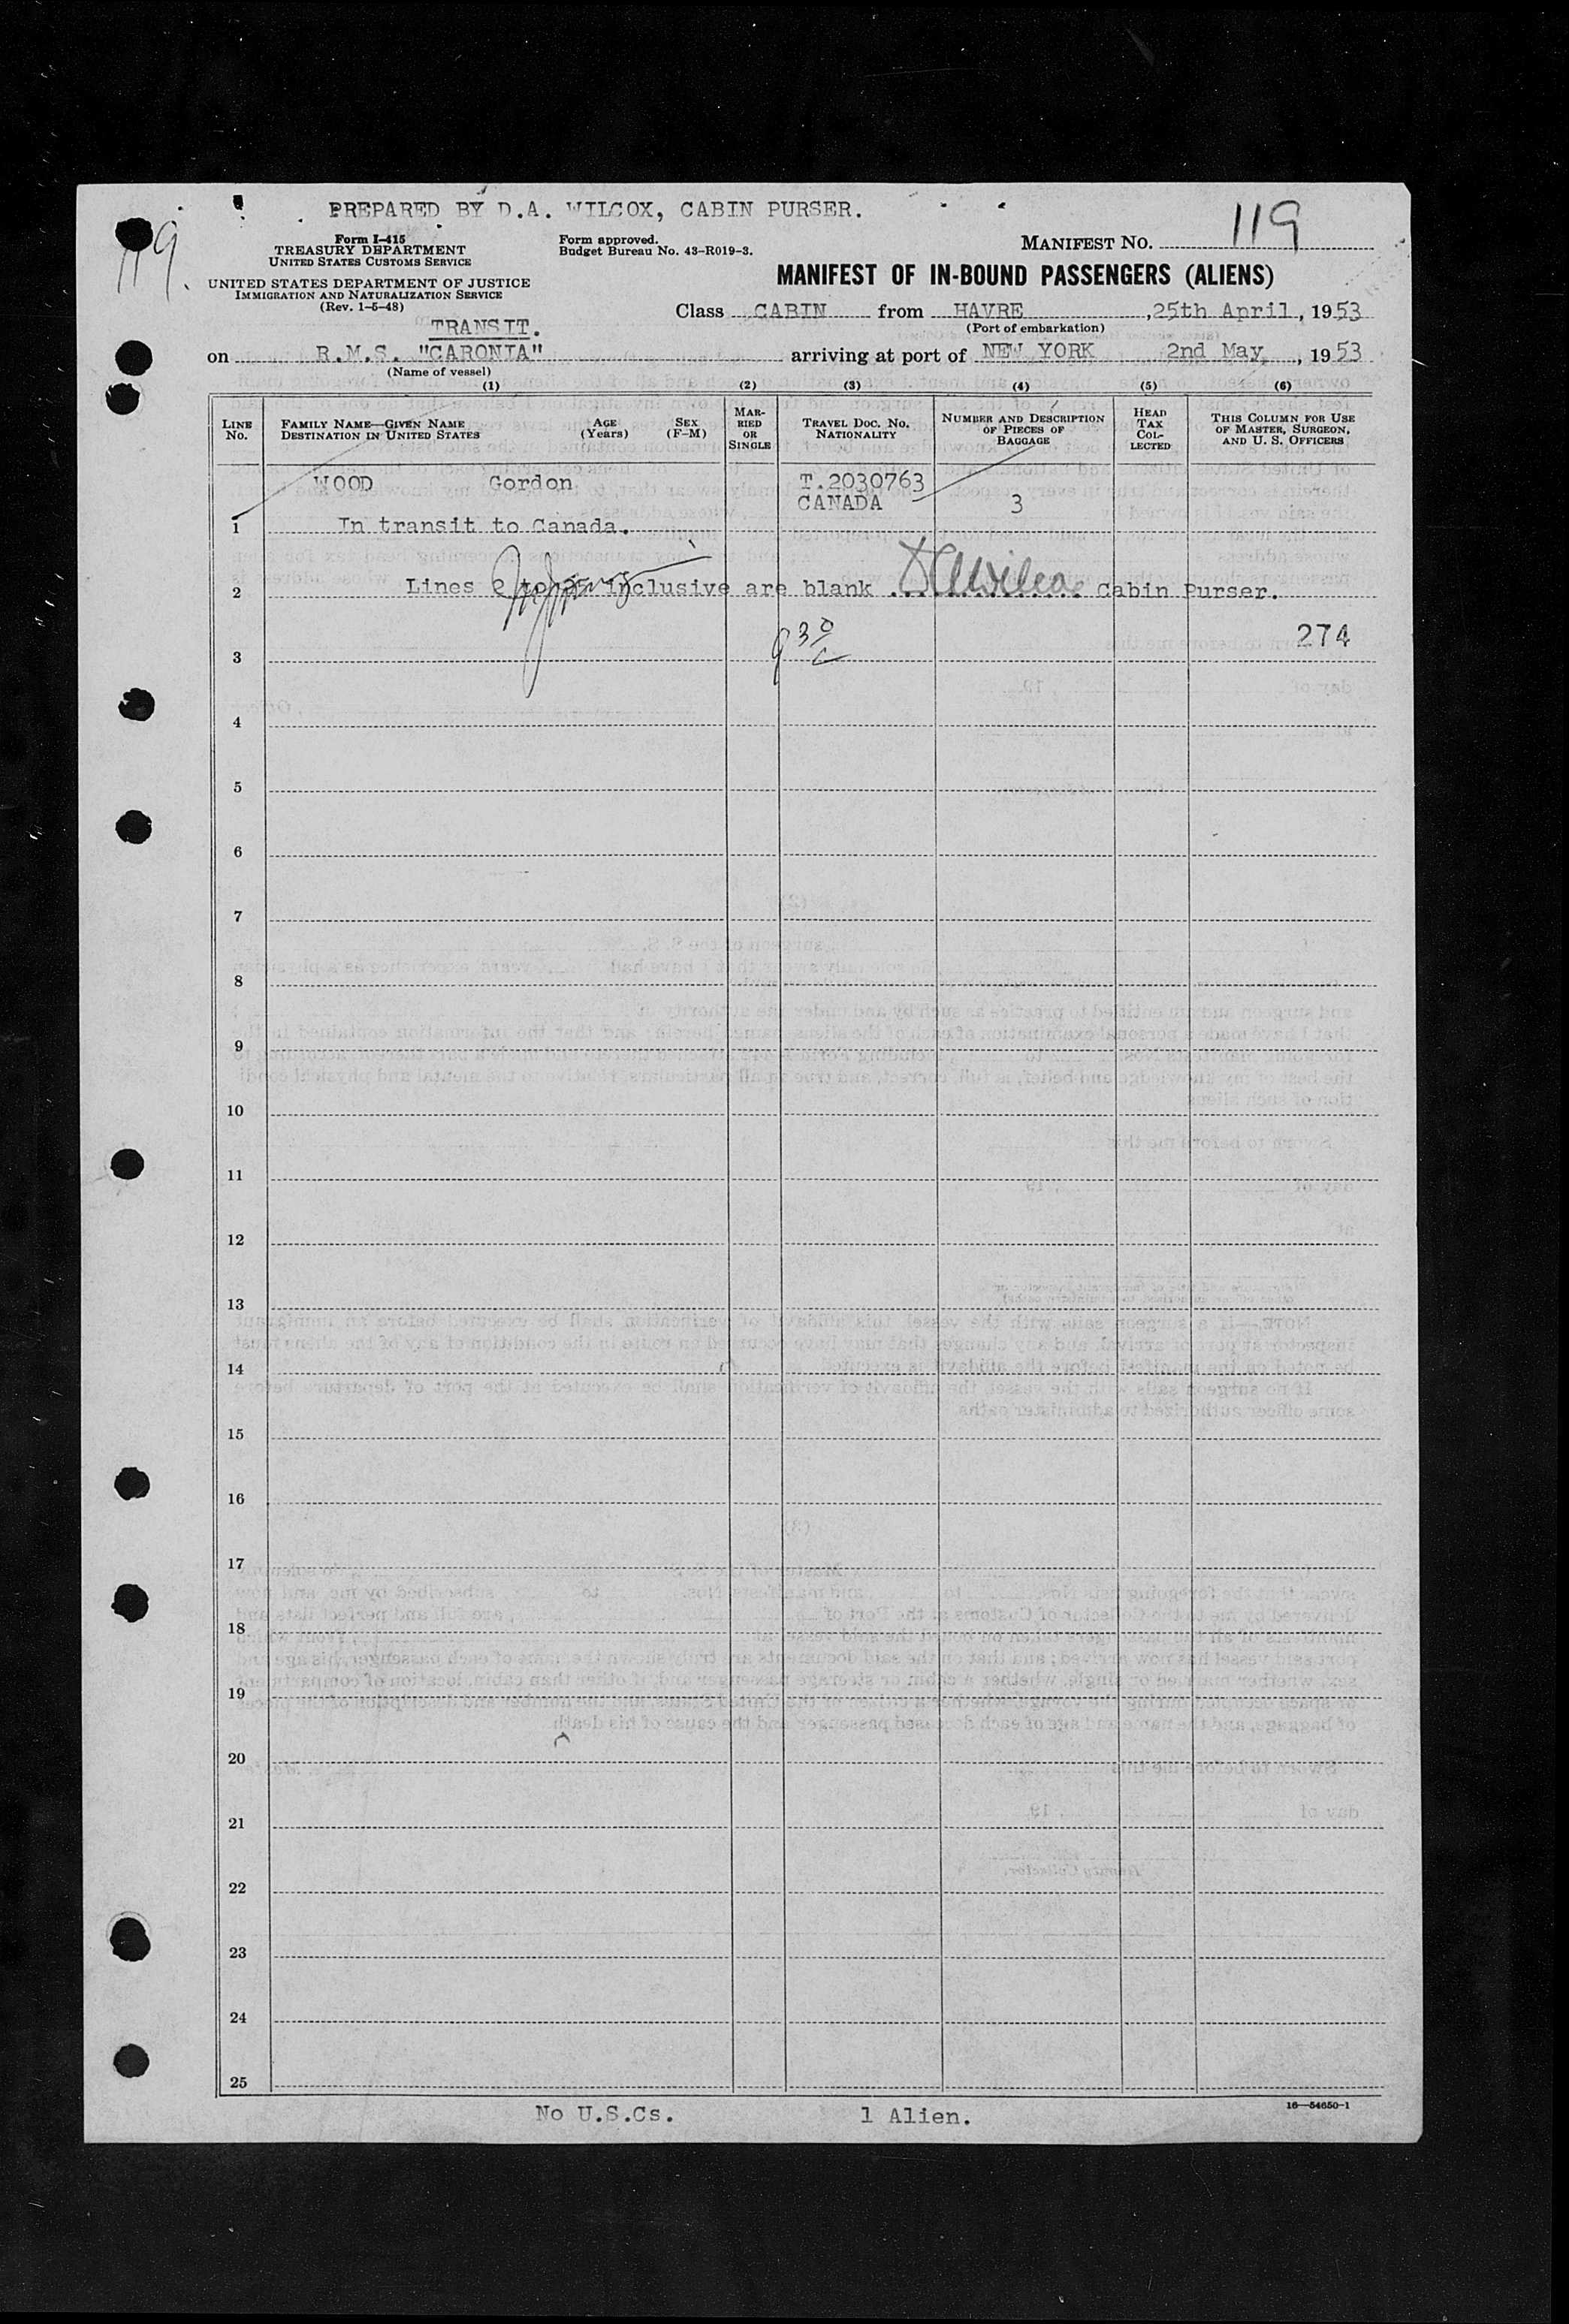 PREPARED BY D.A. WILCOX, CABIN PURSER.
119
Form I-415
TREASURY DEPARTMENT
UNITED STATES CUSTOMS SERVICE
Form approved.
Budget Bureau No. 43-R019-3.
MANIFEST NO. 119
UNITED STATES DEPARTMENT OF JUSTICE
IMMIGRATION AND NATURALIZATION SERVICE
(Rev. 1-5-48)
MANIFEST OF IN-BOUND PASSENGERS (ALIENS)
Class CABIN from HAVRE, 25th April, 1953
(Port of embarkation)
TRANSIT.
on R.M.S. "CARONIA" arriving at port of NEW YORK 2nd May, 1953
(Name of vessel)
(1) (2) (3) (4) (5) (6)
LINE No. FAMILY NAME—GIVEN NAME DESTINATION IN UNITED STATES AGE (Years) SEX (F-M) MARRIED OR SINGLE TRAVEL DOC. NO. NATIONALITY NUMBER AND DESCRIPTION OF PIECES OF BAGGAGE HEAD TAX COLLECTED THIS COLUMN FOR USE OF MASTER, SURGEON, AND U. S. OFFICERS
WOOD Gordon T.2030763
CANADA 3
1 In transit to Canada.
2 Lines 2 to 25 inclusive are blank DAWilcox Cabin Purser.
274
3
4
5
6
7
8
9
10
11
12
13
14
15
16
17
18
19
20
21
22
23
24
25
No U.S.Cs. 1 Alien. 16—54650-1